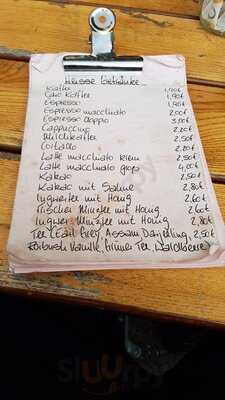 Heisse Getränke
Kaffee 1,90€
Cafe Kaffee 1,90€
Espresso 1,90€
Espresso macchiato 2,00€
Espresso doppio 3,00€
Cappuccino 2,20€
Milchkaffee 2,50€
Cortado 2,20€
Latte macchiato klein 2,50€
Latte macchiato groß 4,00€
Kakao 2,50€
Kakao mit Sahne 2,80€
Ingwertee mit Honig 2,60€
Frischer Minztee mit Honig 2,60€
Ingwer Minztee mit Honig 2,80€
Tee (Earl Grey, Assam Darjeeling, 2,50€
Roibush Vanille, Grüner Tee, Waldbeere)
sluurpy